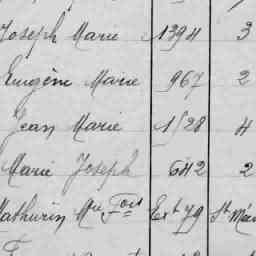 Joseph Marie 1394 3
Eugène Marie 967 2
Jean Marie 1528 4
Marie Joseph 642 2
Mathurin Mie Fois Ext 79 St Méen